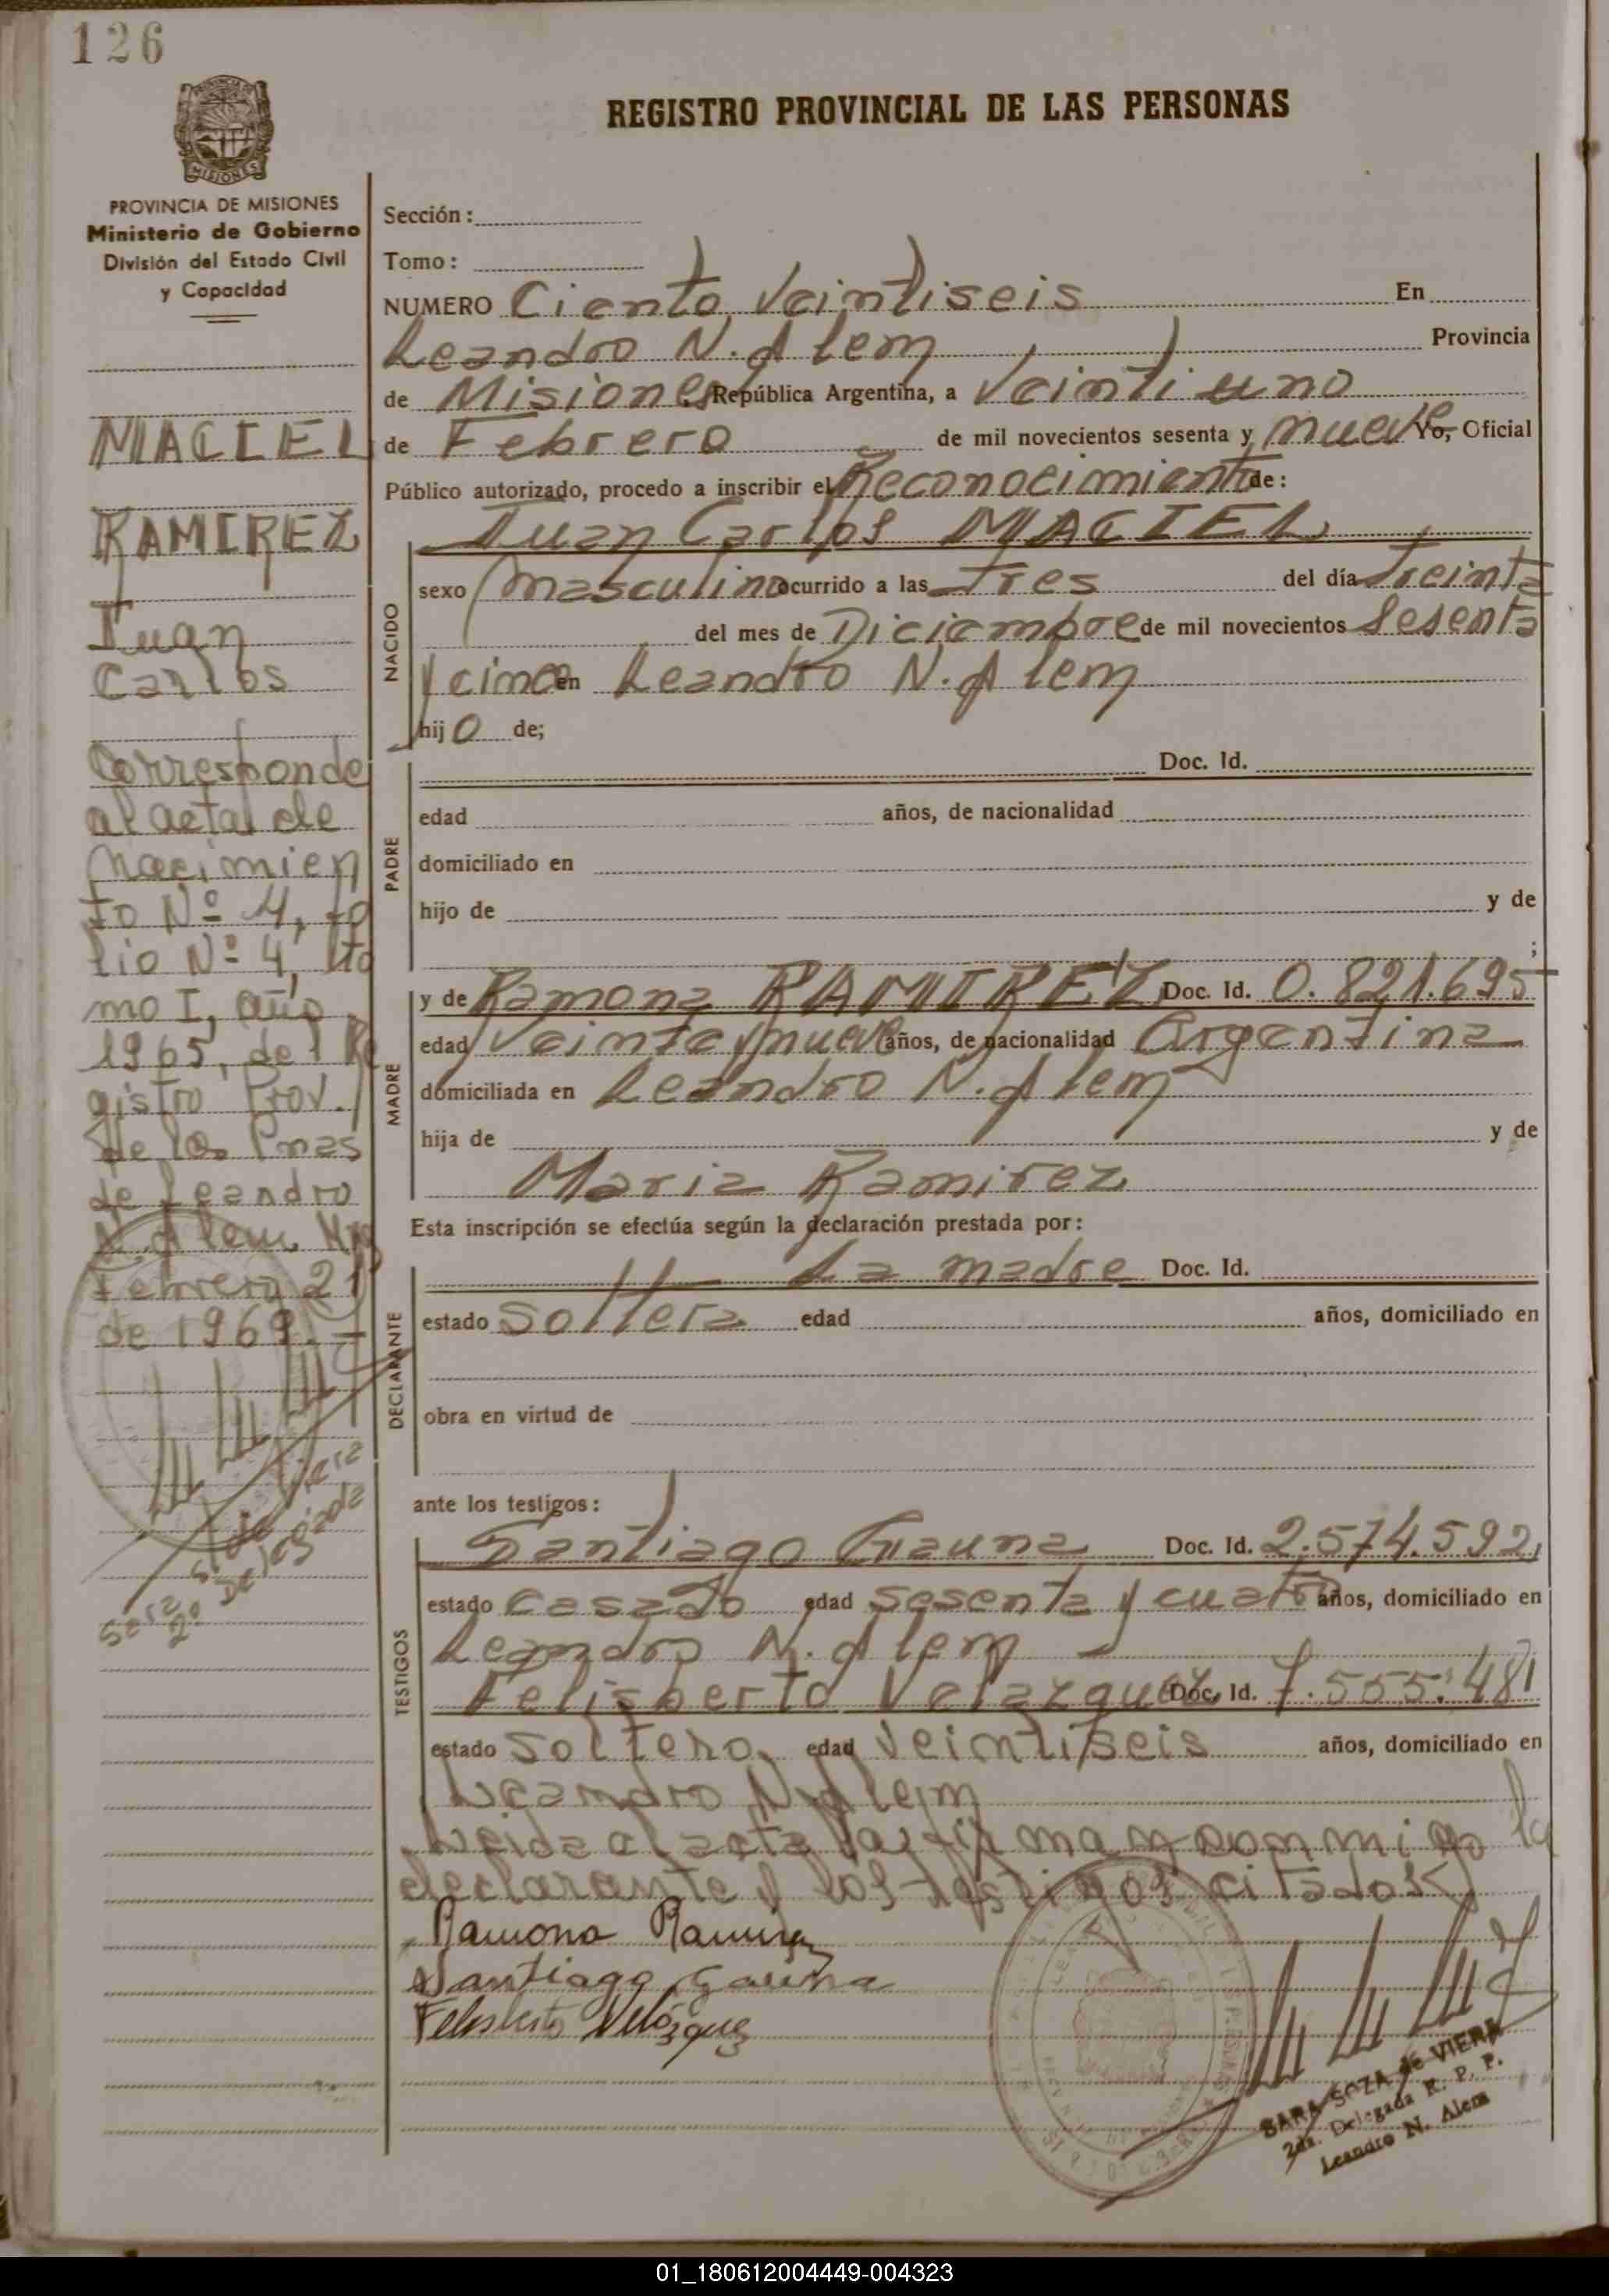 126
REGISTRO PROVINCIAL DE LAS PERSONAS
MISIONES
PROVINCIA DE MISIONES
Ministerio de Gobierno
División del Estado Civil
y Capacidad
MACIEL
RAMIREZ
Juan
Carlos
Corresponde
al acta de
Nacimien
to Nº 4, fo
lio Nº 4, to
mo I, año
1965, del Re
gistro Prov.
de las Pnas
de Leandro
N. Alem. Mns
Febrero 21
de 1969.-
Sección:
Tomo:
NUMERO Ciento Veintiseis En
Leandro N. Alem Provincia
de Misiones República Argentina, a Veintiuno
de Febrero de mil novecientos sesenta y nueve Yo, Oficial
Público autorizado, procedo a inscribir el Reconocimiento de:
Juan Carlos MACIEL
NACIDO
sexo Masculino ocurrido a las Tres del día Treinta
del mes de Diciembre de mil novecientos Sesenta
y cinco en Leandro N. Alem
hij o de;
PADRE
Doc. Id.
edad años, de nacionalidad
domiciliado en
hijo de y de
;
MADRE
y de Ramona RAMIREZ Doc. Id. 0.821.695
edad Veinte y nueve años, de nacionalidad Argentina
domiciliada en Leandro N. Alem
hija de y de
Maria Ramirez
Esta inscripción se efectúa según la declaración prestada por:
DECLARANTE
La madre Doc. Id.
estado Soltera edad años, domiciliado en
obra en virtud de
ante los testigos:
TESTIGOS
Santiago Gauna Doc. Id. 2.574.592
estado Casado edad Sesenta y cuatro años, domiciliado en
Leandro N. Alem
Felisberto Velazquez Doc. Id. 7.555.481
estado Soltero edad Veintiseis años, domiciliado en
Leandro N. Alem
Leida el acta la firman conmigo la
declarante y los testigos citados
Ramona Ramirez
Santiago Gauna
Felisberto Velázquez
SARA SOZA de VIERA
2da. Delegada R. P. P.
Leandro N. Alem
01_180612004449-004323